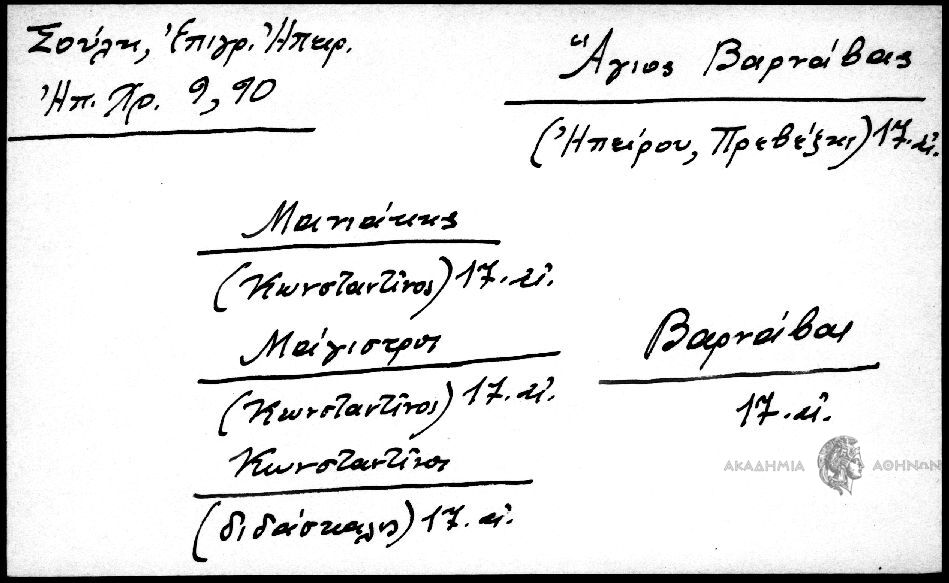 Σούλη, Ἐπιγρ. Ἠπειρ.
Ἠπ. Χρ. 9, 90
Ἅγιος Βαρνάβας
(Ἠπείρου, Πρεβέζης) 17. αἰ.
Μανιάκης
(Κωνσταντῖνος) 17. αἰ.
Μάγιστρος
(Κωνσταντῖνος) 17. αἰ.
Κωνσταντῖνος
(διδάσκαλος) 17. αἰ.
Βαρνάβας
17. αἰ.
ΑΚΑΔΗΜΙΑ ΑΘΗΝΩΝ